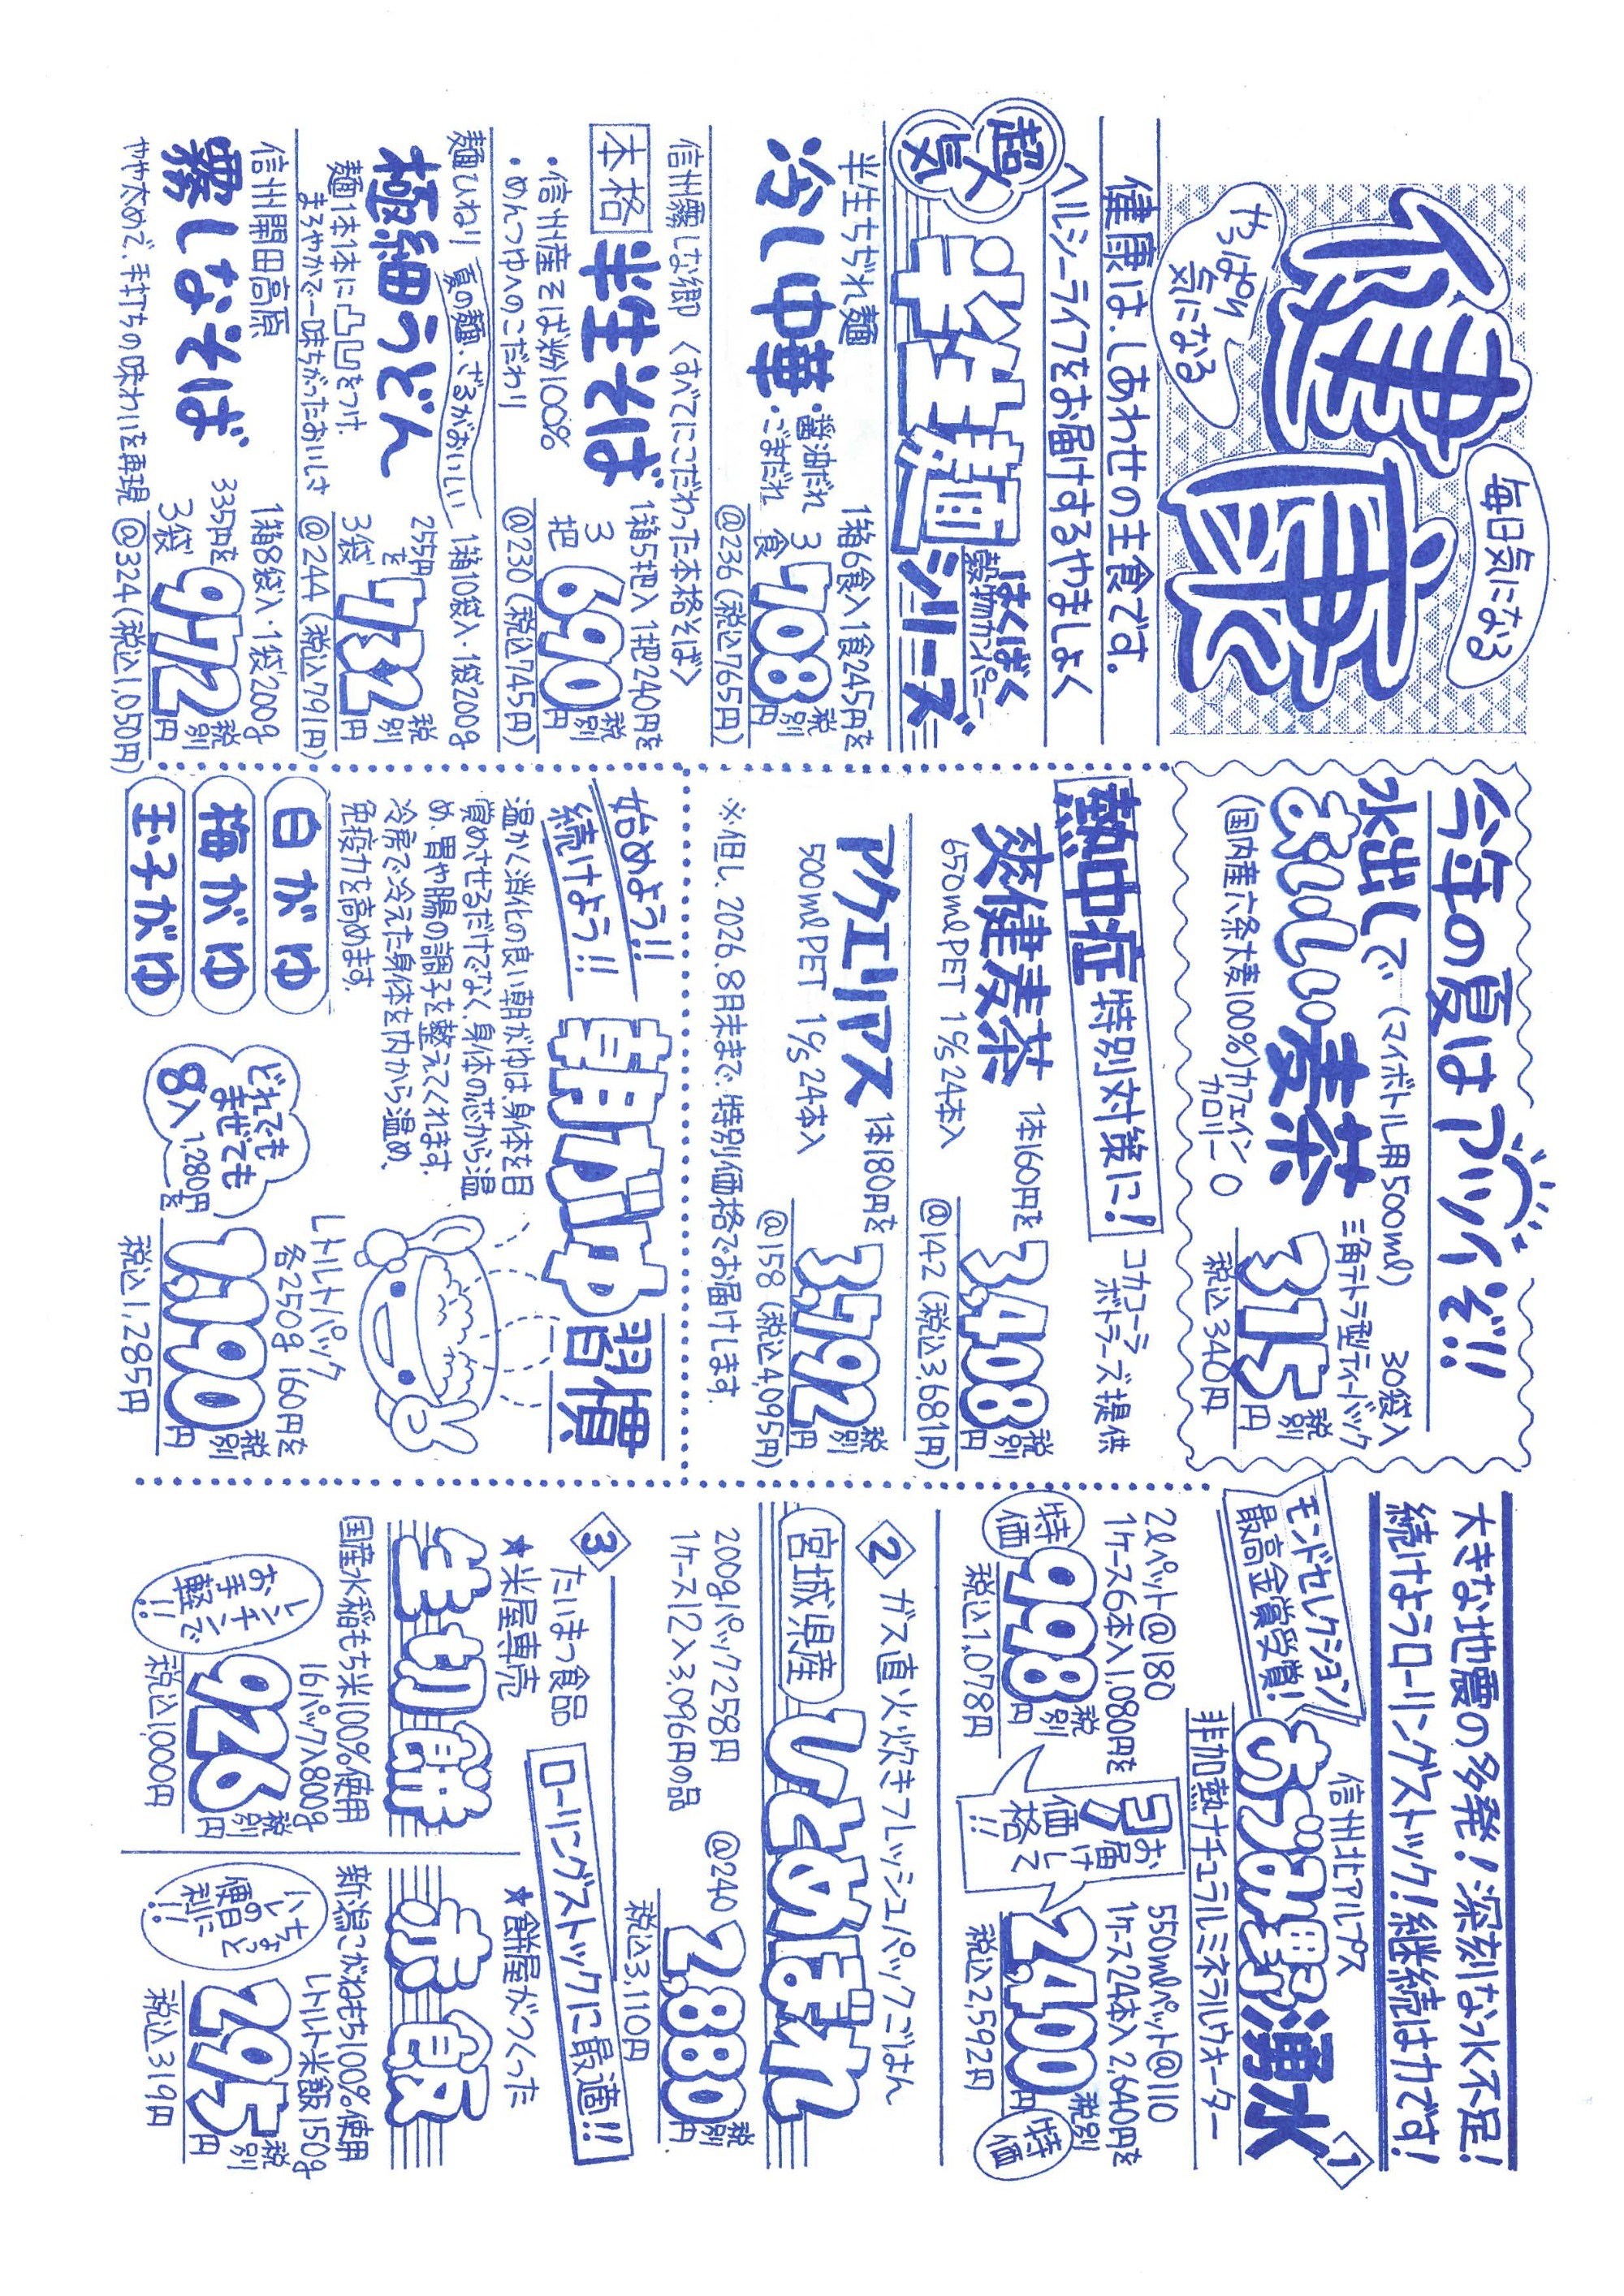 やっぱり
気になる
健康
毎日気になる
健康は、しあわせの主食です。
ヘルシーライフをお届けするやましよく
超人気
半生麺シリーズ
はくばく
穀物カンパニー
半生ちぢれ麺
冷し中華
・醤油だれ
・ごまだれ
1箱6食入 1食245円を
3食 708円 税別
@236(税込765円)
信州霧しな郷 〈すべてにこだわった本格そば〉
本格 半生そば
・信州産そば粉100%
・めんつゆへのこだわり
1箱5把入 1把240円を
3把 690円 税別
@230(税込745円)
麺ひねり 夏の麺、ざるがおいしい
極細うどん
麺1本1本に凸凹をつけ、
まろやかで一味ちがったおいしさ
1箱10袋入・1袋200g
255円を
3袋 732円 税別
@244(税込791円)
信州開田高原
霧しなそば
やや太めで、手打ちの味わいを再現
1箱8袋入・1袋200g
335円を
3袋 972円 税別
@324(税込1,050円)
今年の夏はアツイぞ!!
水出しで(マイボトル用500ml)
おいしい麦茶
(国内産六条大麦100%)カフェイン・カロリー 0
30袋入
三角テトラ型ティーバック
315円 税別
税込340円
熱中症特別対策に!
コカコーラ
ボトラーズ提供
爽健麦茶
650mlPET 1c/s24本入
1本160円を
3,408円 税別
@142(税込3,681円)
アクエリアス
500mlPET 1c/s24本入
1本180円を
3,792円 税別
@158(税込4,095円)
※但し、2026.8月末まで、特別価格でお届けします。
始めよう!!
続けよう!!
朝がゆ習慣
温かく消化の良い朝がゆは、身体を目
覚めさせるだけでなく、身体の芯から温
め、胃や腸の調子を整えてくれます。
冷房で冷えた身体を内から温め、
免疫力を高めます。
白がゆ
梅がゆ
玉子がゆ
どれでも
まぜても
8入 1,280円を
レトルトパック
各250g 160円を
1,190円 税別
税込1,285円
大きな地震の多発!深刻な水不足!
続けようローリングストック!!継続は力です!
モンドセレクション
最高金賞受賞!
信州北アルプス
あづみ野湧水
1
非加熱ナチュラルミネラルウォーター
2ℓペット@180
1ケース6本入1,080円を
特価 998円 税別
税込1,078円
お届け
価格
です!!
550mlペット@110
1ケース24本入2,640円を
2,400円 税別 特価
税込2,592円
2
ガス直火炊きフレッシュパックごはん
宮城県産 ひとめぼれ
200gパック258円
1ケース12入3,096円の品
@240 2,880円 税別
税込3,110円
3
たいまつ食品
ローリングストックに最適!!
★米屋専売
生切餅
国産水稲もち米100%使用
16パック入800g
レンチンで
お手軽!!
926円 税別
税込1,000円
★餅屋がつくった
赤飯
新潟こがねもち100%使用
レトルト米飯150g
ちょっと
いい日の
便利に!!
295円 税別
税込319円